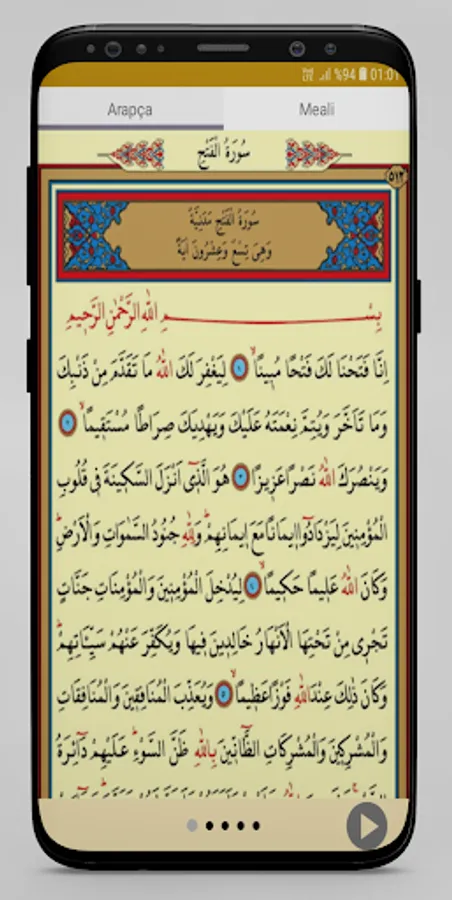 %94 01:01
Arapça Meali
سُورَةُ الْفَتْحِ
٥١٢
سُورَةُ الْفَتْحِ مَدَنِيَّةٌ
وَهِيَ تِسْعٌ وَعِشْرُونَ اٰيَةً
بِسْمِ اللّٰهِ الرَّحْمٰنِ الرَّحٖيمِ
اِنَّا فَتَحْنَا لَكَ فَتْحًا مُبٖينًاۙ ﴿١﴾ لِيَغْفِرَ لَكَ اللّٰهُ مَا تَقَدَّمَ مِنْ ذَنْبِكَ
وَمَا تَاَخَّرَ وَيُتِمَّ نِعْمَتَهُ عَلَيْكَ وَيَهْدِيَكَ صِرَاطًا مُسْتَقٖيمًاۙ ﴿٢﴾
وَيَنْصُرَكَ اللّٰهُ نَصْرًا عَزٖيزًا ﴿٣﴾ هُوَ الَّذٖٓى اَنْزَلَ السَّكٖينَةَ فٖى قُلُوبِ
الْمُؤْمِنٖينَ لِيَزْدَادُٓوا اٖيمَانًا مَعَ اٖيمَانِهِمْۜ وَلِلّٰهِ جُنُودُ السَّمٰوَاتِ وَالْاَرْضِۜ
وَكَانَ اللّٰهُ عَلٖيمًا حَكٖيمًاۙ ﴿٤﴾ لِيُدْخِلَ الْمُؤْمِنٖينَ وَالْمُؤْمِنَاتِ جَنَّاتٍ
تَجْرٖى مِنْ تَحْتِهَا الْاَنْهَارُ خَالِدٖينَ فٖيهَا وَيُكَفِّرَ عَنْهُمْ سَيِّـَٔاتِهِمْۜ
وَكَانَ ذٰلِكَ عِنْدَ اللّٰهِ فَوْزًا عَظٖيمًاۙ ﴿٥﴾ وَيُعَذِّبَ الْمُنَافِقٖينَ وَالْمُنَافِقَاتِ
وَالْمُشْرِكٖينَ وَالْمُشْرِكَاتِ الظَّٓانّٖينَ بِاللّٰهِ ظَنَّ السَّوْءِۜ عَلَيْهِمْ دَٓائِرَةُ